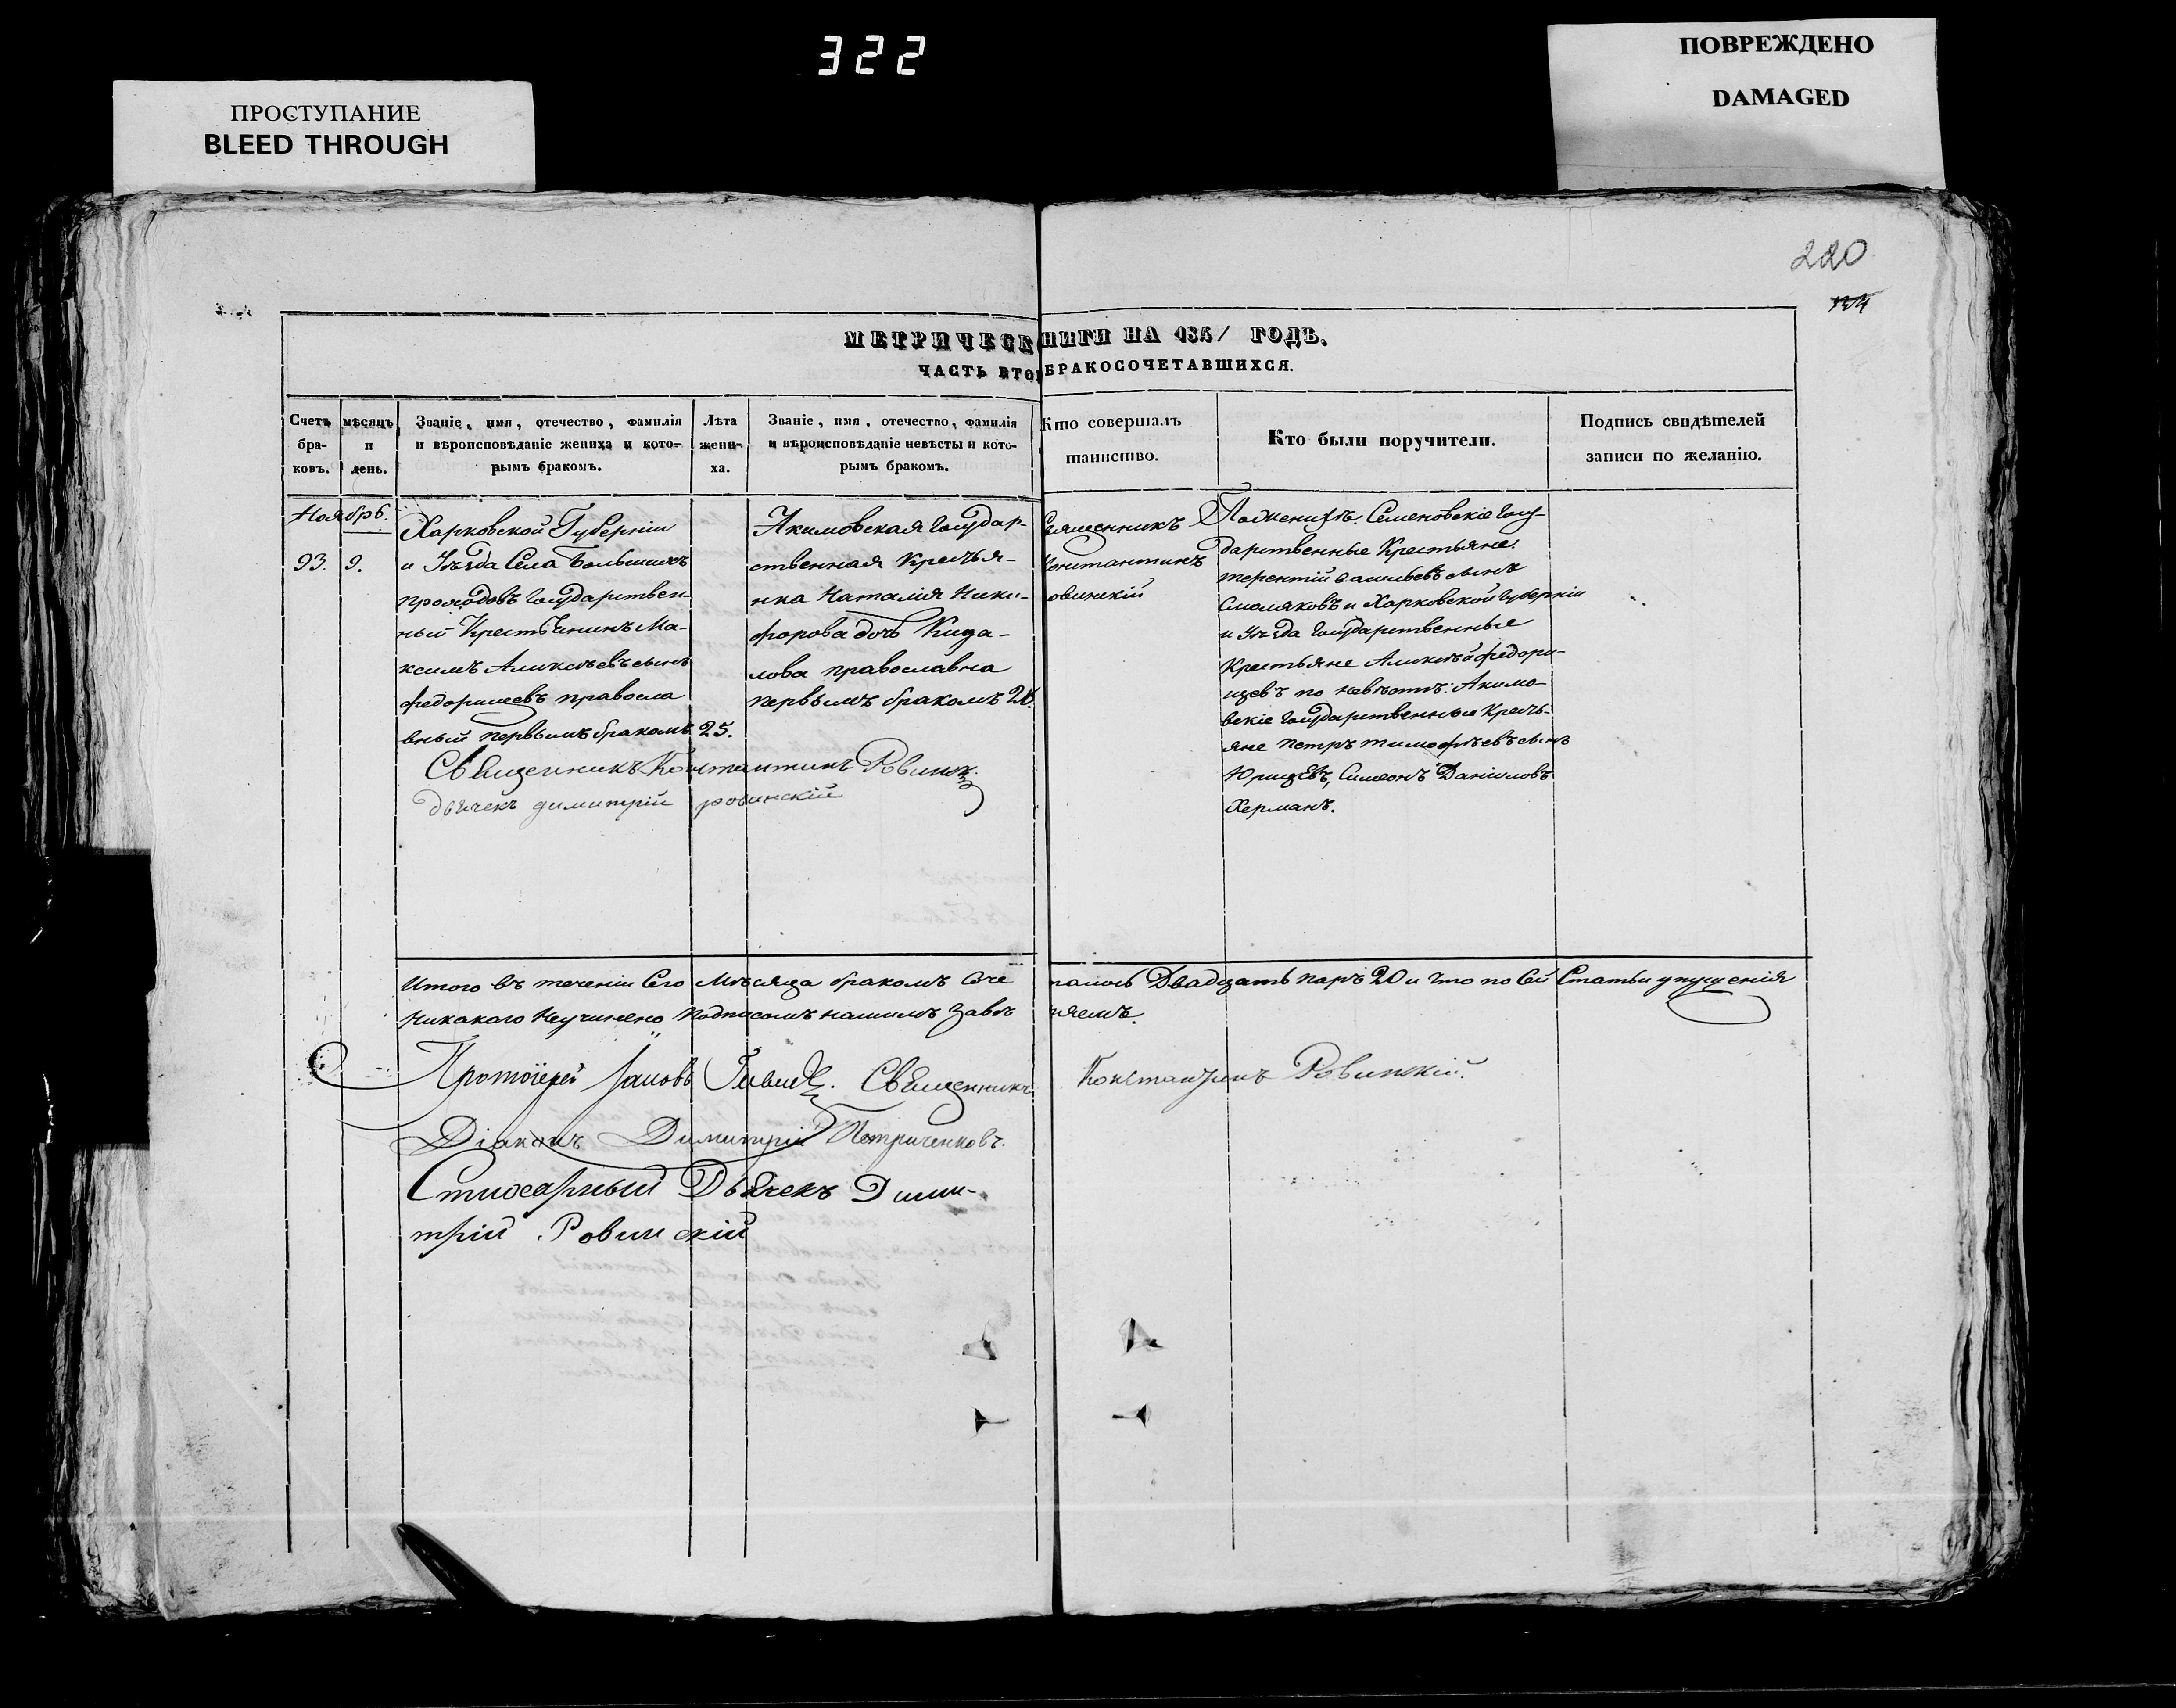 322
ПРОСТУПАНИЕ
BLEED THROUGH
ПОВРЕЖДЕНО
DAMAGED
220
МЕТРИЧЕСК НИГИ НА 1847 ГОДЪ.
ЧАСТЬ ВТО БРАКОСОЧЕТАВШИХСЯ.
Счетъ бра- ковъ.
мѣсяцъ и день.
Званіе, имя, отечество, фамилія
и вѣроисповѣданіе жениха и кото-
рымъ бракомъ.
Лѣта жени- ха.
Званіе, имя, отечество, фамилія
и вѣроисповѣданіе невѣсты и кото-
рымъ бракомъ.
Кто совершалъ
таинство.
Кто были поручители.
Подпись свидѣтелей
записи по желанію.
Ноябрь.
93. 9.
Харковской Губерніи
и Уѣзда Села Большихъ
Проходовъ Государствен-
ный Крестьянинъ Ма-
ксимъ Алексѣевъ сынъ
Федорищевъ правосла
вный первымъ бракомъ 25.
Акимовская Государ-
ственная Крестья-
нка Наталія Ники-
форова дочь
лова православна
первымъ бракомъ
Священникъ
Константинъ
овинскій
По Женихѣ: Семеновскіе Госу-
дарственные Крестьяне:
Терентій Васильевъ сынъ
Смоляковъ и Харковской Губерніи
и Уѣзда Государственные
Крестьяне Алексѣй Федори-
щевъ по невѣстѣ: Акимо-
вскіе Государственные Кресть-
яне Петръ Тимофѣевъ сынъ
Юрищевъ, Симеонъ Даніиловъ
Херманъ.
Священникъ Константинъ Ровинск.
Дьячекъ Димитрій Ровинскій
Итого въ теченіи Сего Мѣсяца бракомъ Соче талось Двадцать паръ 20 и что по Сей Статьи упущенія
Никакого Неучинено Подписомъ нашимъ Завѣ ряемъ.
Протоіерей Іаковъ Священникъ Константинъ Ровинскій.
Діаконъ Димитрій Петриченковъ.
Стихарный Дьячекъ Дими-
трій Ровинскій